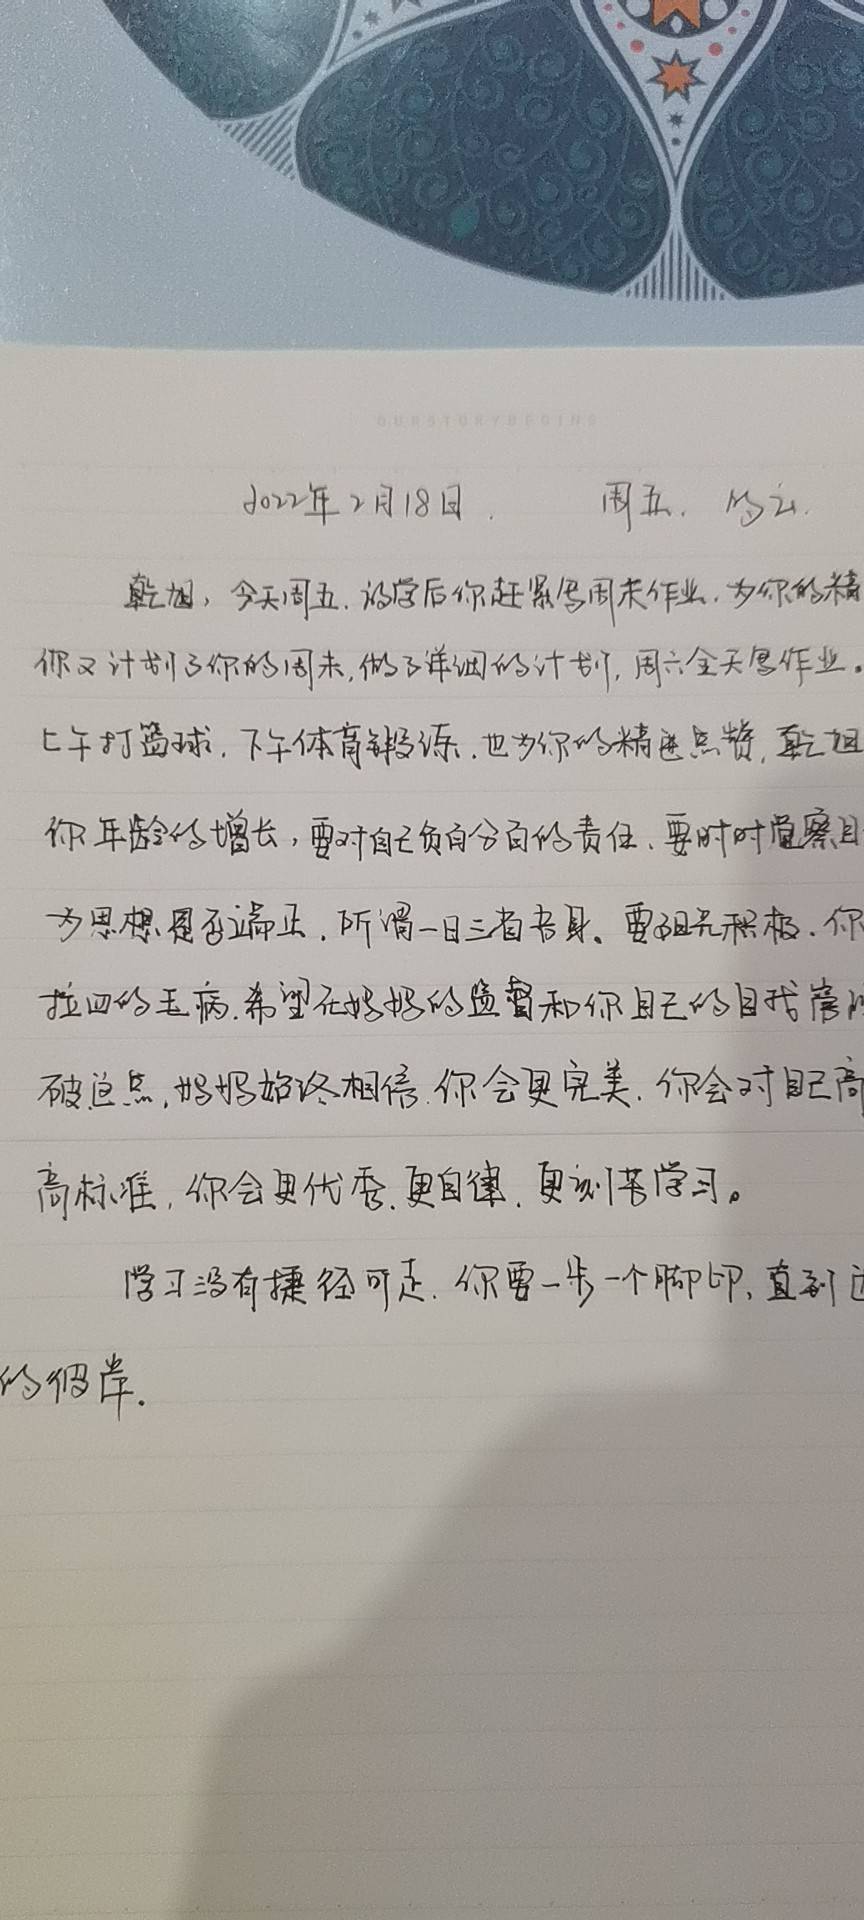 OURSTORYBEGINS
2022年2月18日. 周五. 多云.
乾旭，今天周五.放学后你赶紧写周末作业.为你的精
你又计划了你的周末,做了详细的计划,周六全天写作业。
上午打篮球.下午体育锻练.也为你的精进点赞,乾旭
你年龄的增长，要对自己负百分百的责任、要时时觉察自
为思想是否端正.所谓一日三省吾身。要阳光积极.你
拉四的毛病.希望在妈妈的监督和你自己的自我
破这点,妈妈始终相信.你会更完美.你会对自己高
高标准,你会更优秀.更自律.更刻苦学习。
学习没有捷径可走.你要一步一个脚印,直到
的彼岸.